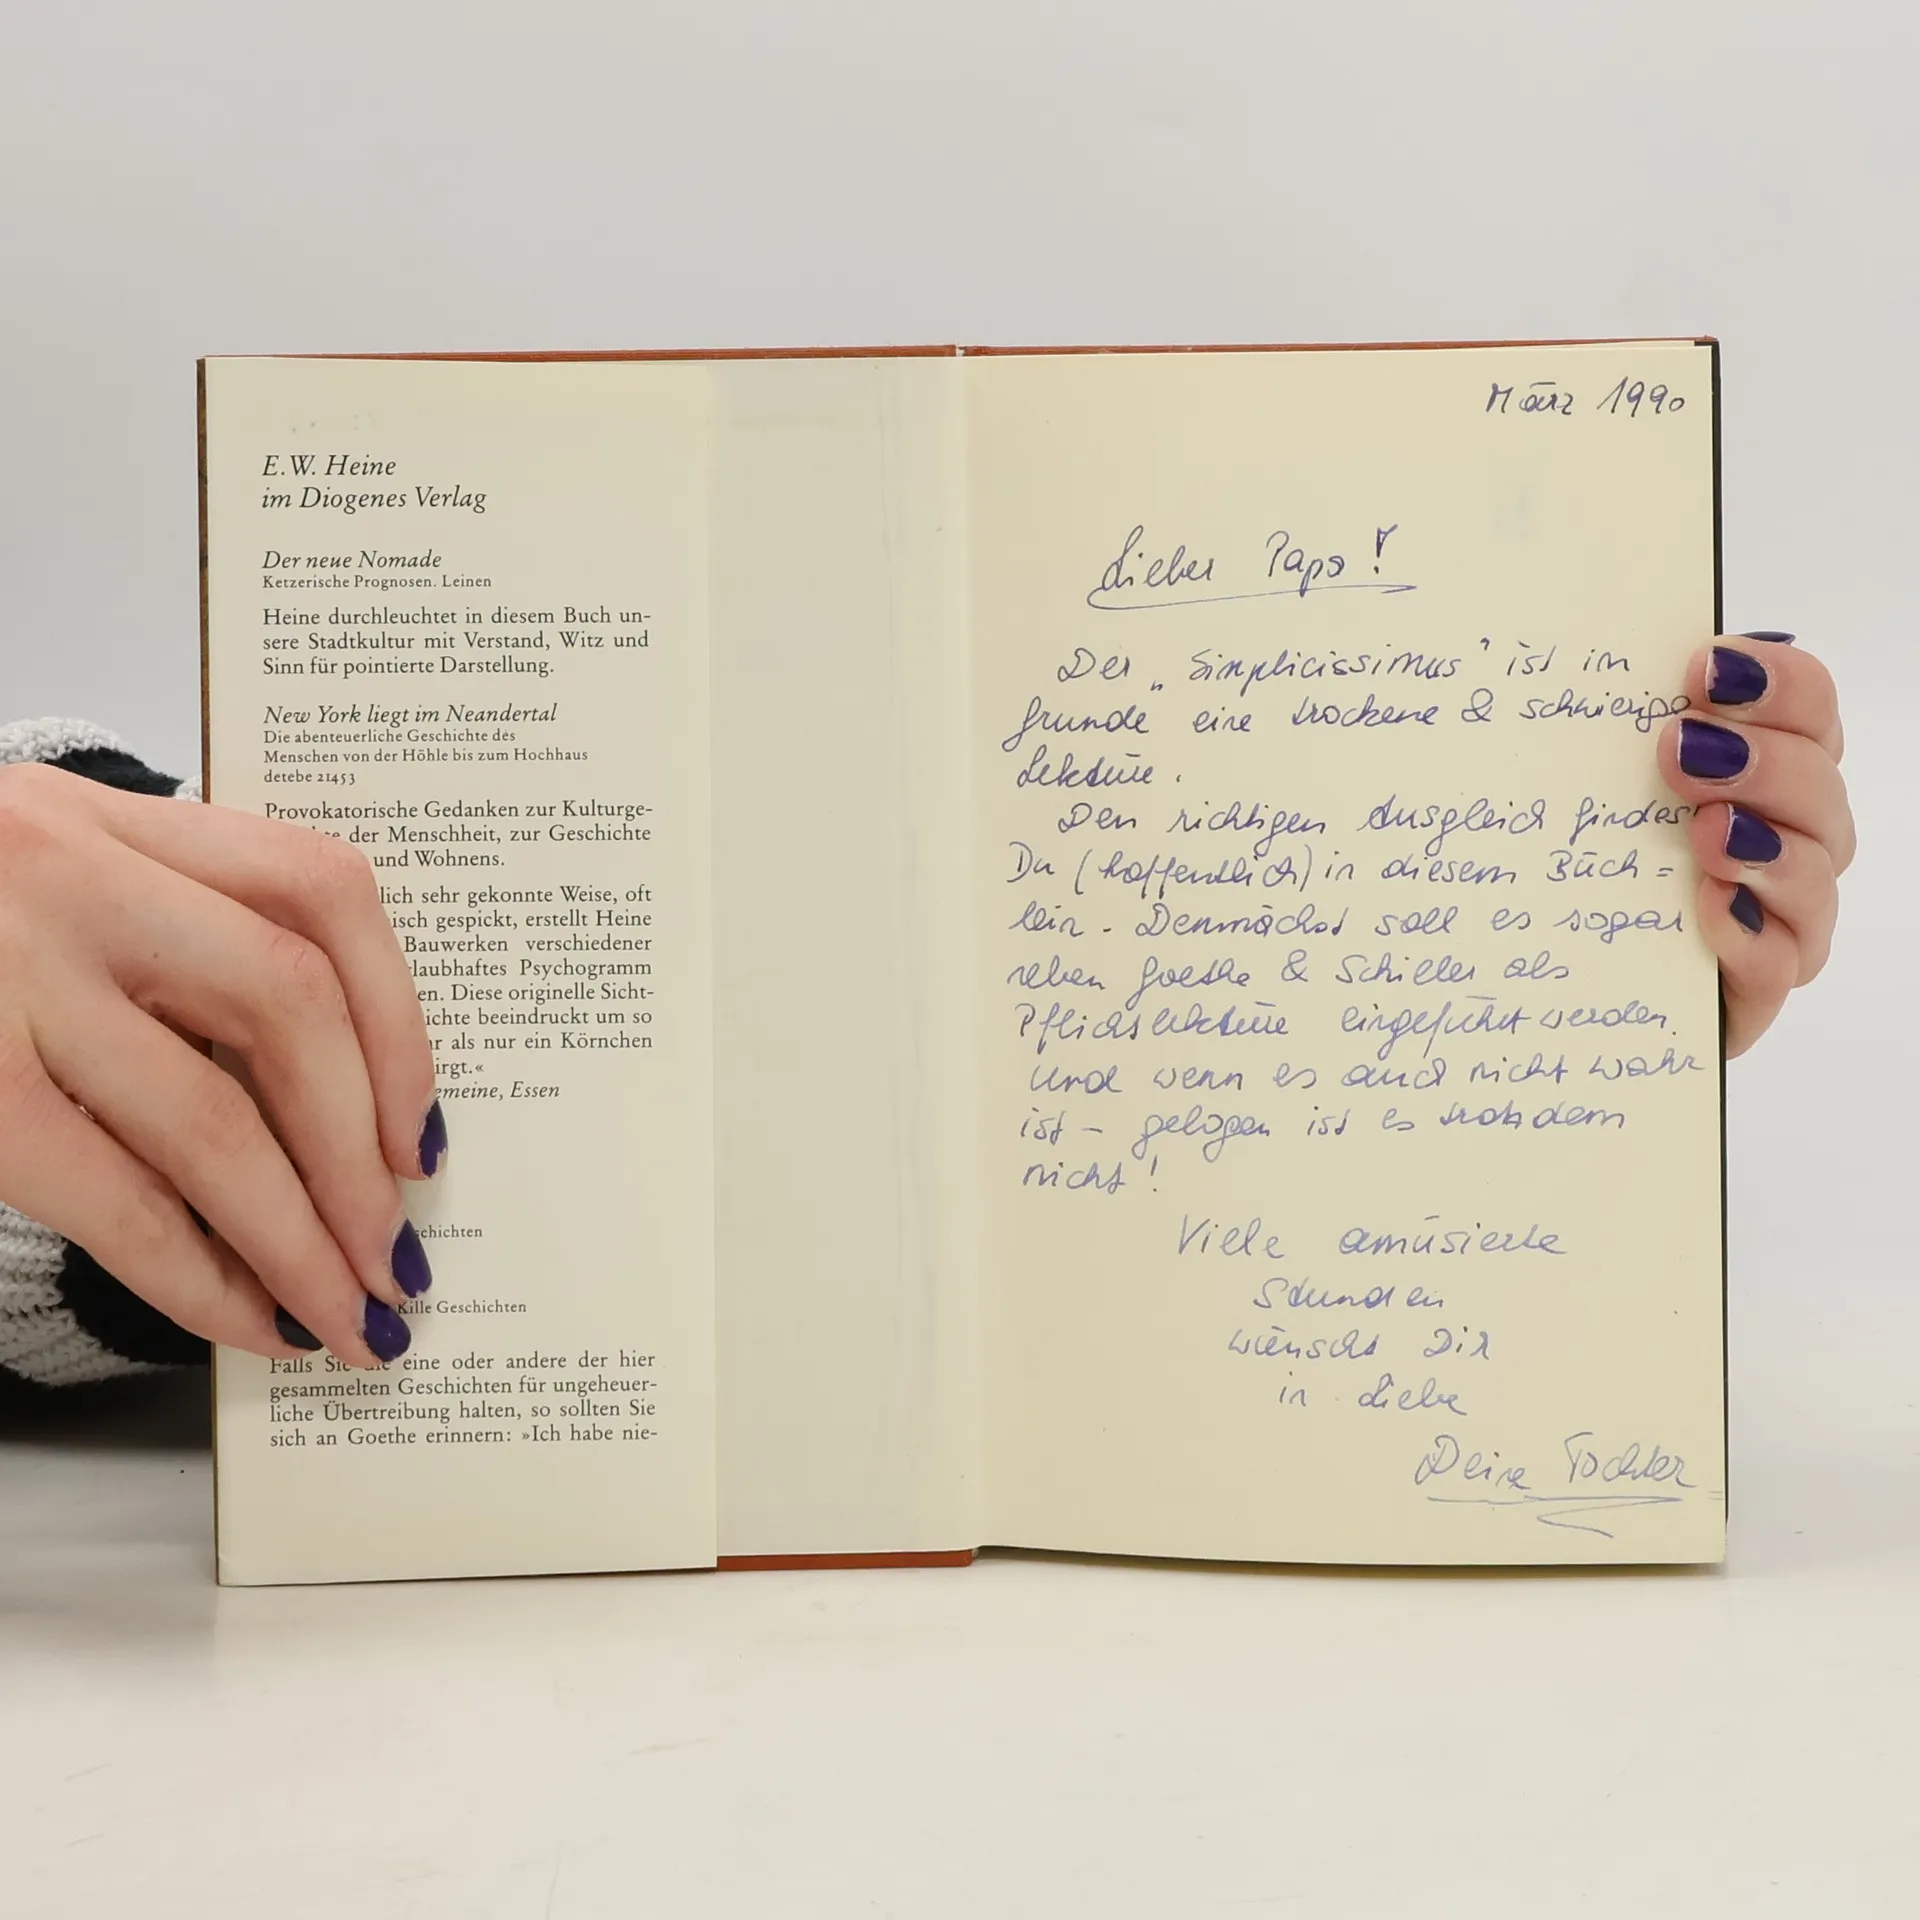 E.W. Heine
im Diogenes Verlag
Der neue Nomade
Ketzerische Prognosen. Leinen
Heine durchleuchtet in diesem Buch un-
sere Stadtkultur mit Verstand, Witz und
Sinn für pointierte Darstellung.
New York liegt im Neandertal
Die abenteuerliche Geschichte des
Menschen von der Höhle bis zum Hochhaus
detebe 21453
Provokatorische Gedanken zur Kulturge-
der Menschheit, zur Geschichte
und Wohnens.
lich sehr gekonnte Weise, oft
isch gespickt, erstellt Heine
Bauwerken verschiedener
laubhaftes Psychogramm
en. Diese originelle Sicht-
ichte beeindruckt um so
hr als nur ein Körnchen
irgt.«
emeine, Essen
chichten
Kille Geschichten
Falls Sie die eine oder andere der hier
gesammelten Geschichten für ungeheuer-
liche Übertreibung halten, so sollten Sie
sich an Goethe erinnern: »Ich habe nie-
März 1990
Lieber Papa!
Der „Simplicissimus" ist im
Grunde eine trockene & schwierige
Lektüre.
Den richtigen Ausgleich findest
Du (hoffentlich) in diesem Büch=
lein. Demnächst soll es sogar
neben Goethe & Schiller als
Pflichtlektüre eingeführt werden.
Und wenn es auch nicht wahr
ist – gelogen ist es trotzdem
nicht!
Viele amüsierte
Stunden
wünscht Dir
in Liebe
Deine Tochter